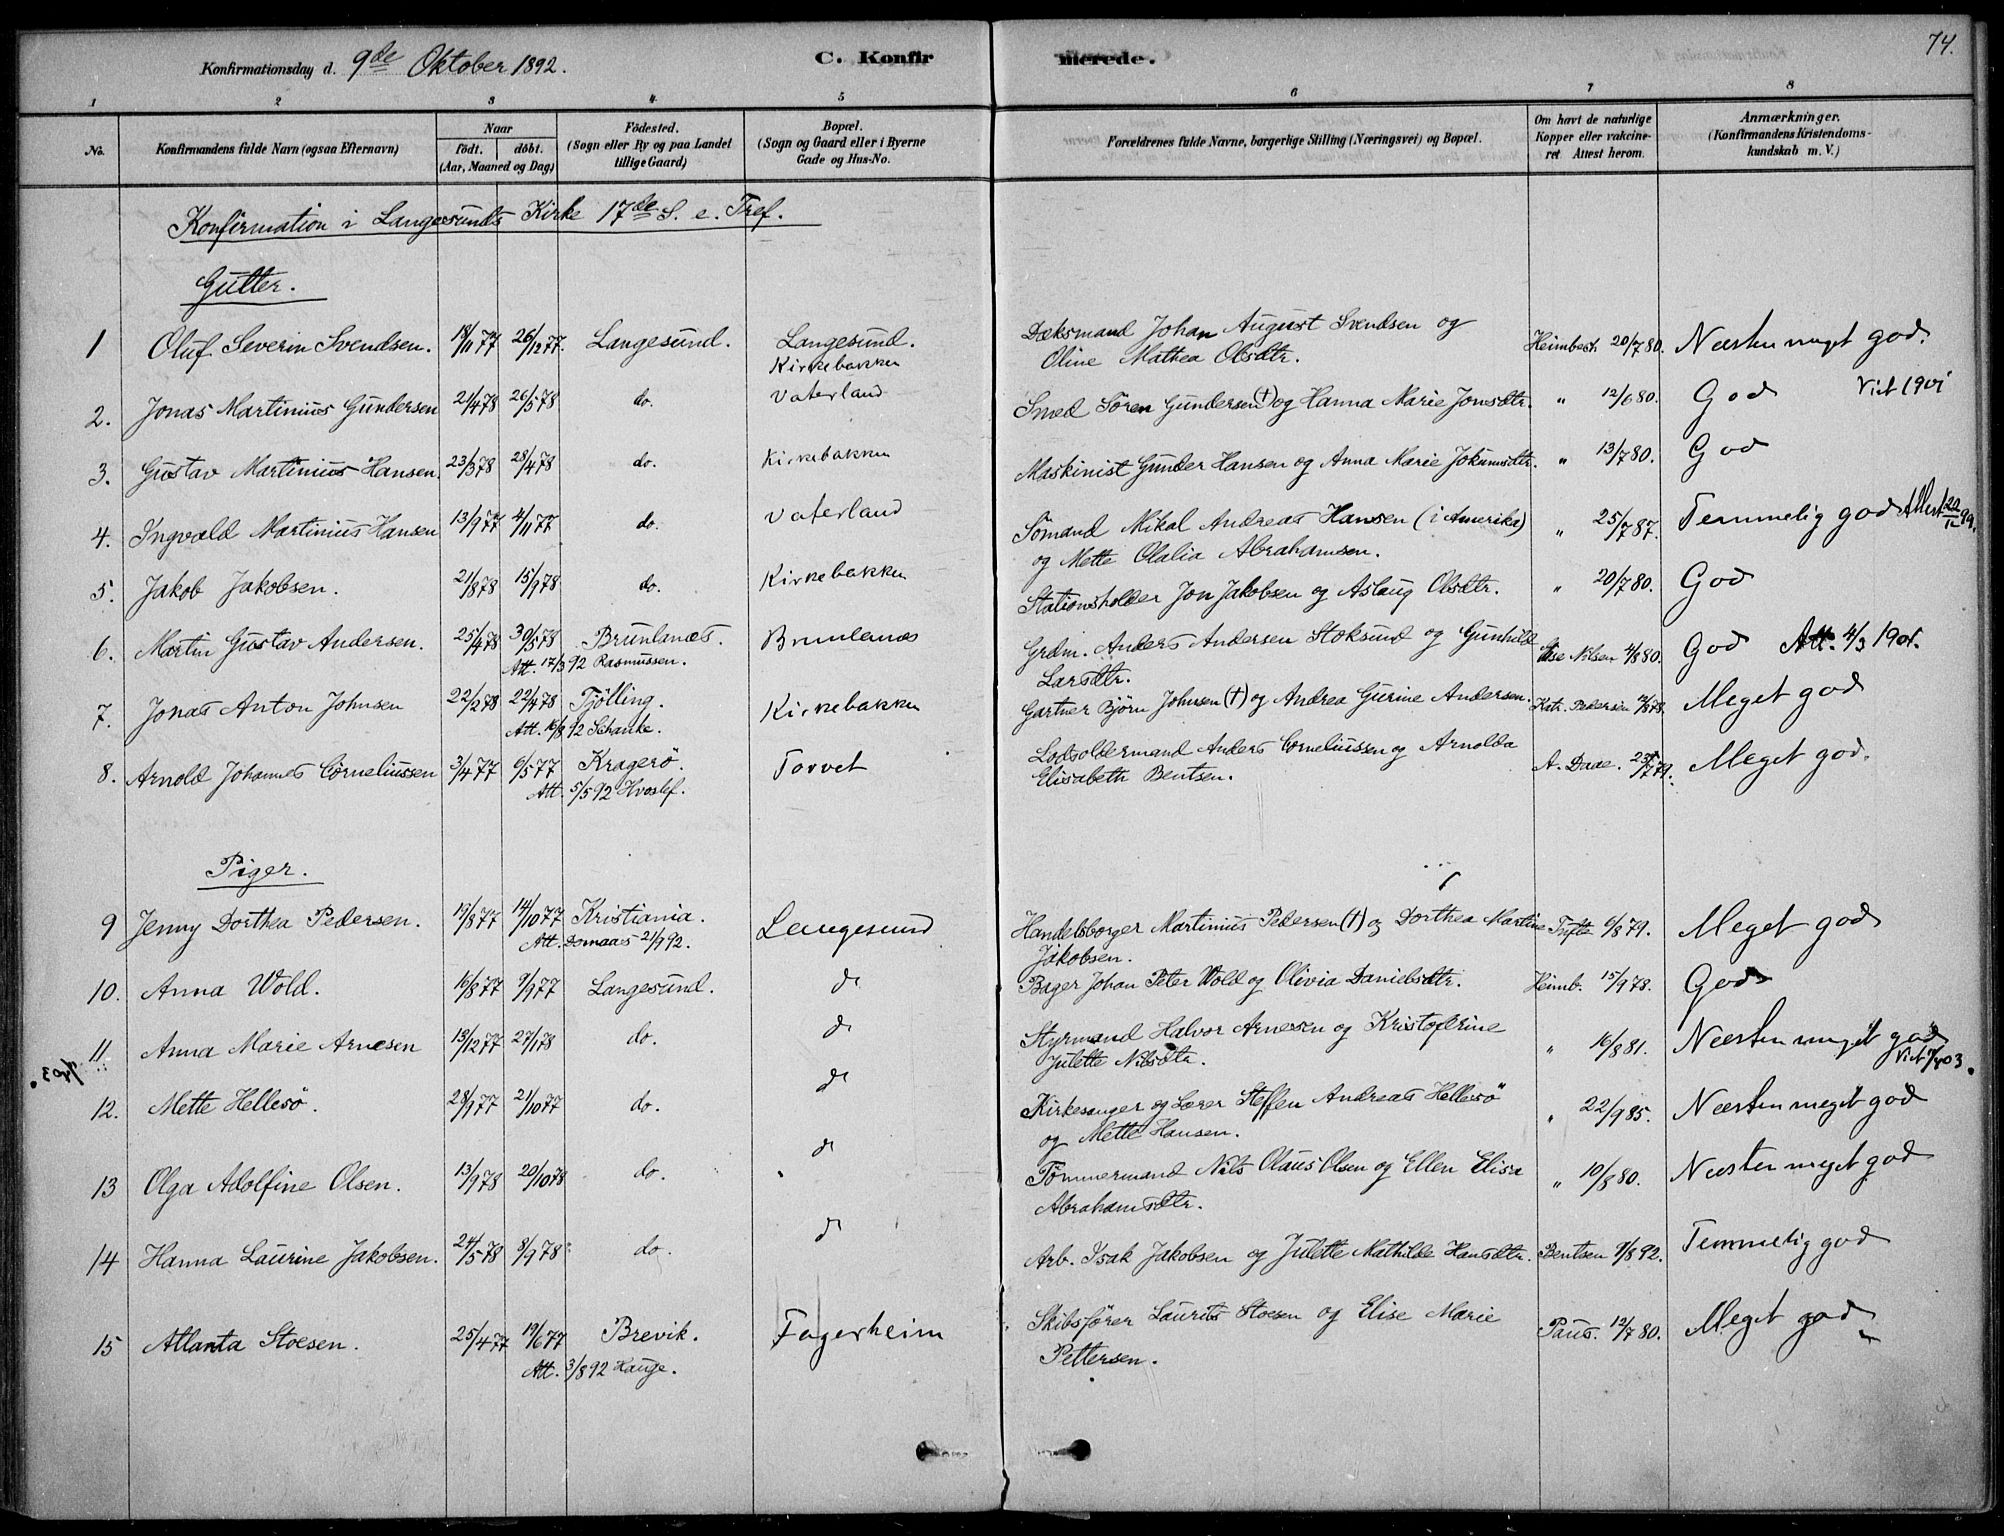 74.
Konfirmationsdag d. 9de Oktober 1892. C. Konfirmerede.
1 2 3 4 5 6 7 8
No. Konfirmandens fulde Navn (ogsaa Efternavn) Naar født. døbt. (Aar, Maaned og Dag) Fødested. (Sogn eller By og paa Landet tillige Gaard) Bopæl. (Sogn og Gaard eller i Byerne Gade og Hus-No. Forældrenes fulde Navne, borgerlige Stilling (Næringsvei) og Bopæl. Om havt de naturlige Kopper eller vakcineret Attest herom. Anmærkninger. (Konfirmandens Kristendomskundskab m. V.)
Konfirmation i Langesunds Kirke 17de S. e. Tref.
Gutter.
1 Oluf Severin Svendsen. 18/11 77 26/12 77. Langesund. Langesund. Kirkebakken Dæksmand Johan August Svendsen og Oline Mathea Olsdtr. Heimbeck 20/7 80. Næsten meget god.
2. Jonas Martinius Gundersen 21/4 78 26/5 78 do. Vaterland Smed Sören Gundersen (†) og Hanna Marie Jonsdtr. " 12/6 80. God Viet 1901
3. Gustav Martinius Hansen. 23/3 78 28/4 78 do. Kirkebakken Maskinist Gunder Hansen og Anna Marie Jokumsdtr. " 13/7 80. God
4. Ingvald Martinius Hansen 13/9 77 4/11 77 do. Vaterland Sömand Mikal Andreas Hansen (i Amerika) og Mette Olalia Abrahamsen. " 25/7 87. Temmelig god Attest 22/12 99.
5. Jakob Jakobsen. 21/8 78 15/9 78 do. Kirkebakken Stationsholder Jon Jakobsen og Aslaug Olsdtr. " 20/7 80. God
6. Martin Gustav Andersen. 25/4 78 30/5 78 Brunlanæs. Att. 17/3 92 Rasmussen. Brunlanæs Grdm. Anders Andersen Stoksund og Gunhild Larsdtr. Nilsen 4/8 80. God Att. 4/3 1901.
7. Jonas Anton Johnsen 22/2 78 22/4 78 Tjölling. Att. 16/8 92 Schanke. Kirkebakken Gartner Björn Johnsen (†) og Andrea Gurine Andersen. Katr. Pedersen 12/8 78. Meget god
8. Arnold Johannes Corneliussen 3/4 77 6/5 77 Kragerö. Att. 5/5 92 Hvoslef. Torvet Lodsoldermand Anders Corneliussen og Arnolda Elisabeth Bentsen. A. Daae. 25/7 79. Meget god.
Piger.
9 Jenny Dorthea Pedersen. 15/8 77 14/10 77 Kristiania. Att. Domaas 2/9 92. Langesund Handelsborger Martinius Pedersen (†) og Dorthea Martine Jakobsen. Tufte 6/8 79. Meget god
10. Anna Wold. 16/8 77 9/9 77 Langesund. do Bager Johan Peter Wold og Olivia Danielsdtr. Heimb. 15/9 78. God
11 Anna Marie Arnesen 13/12 77 27/1 78 do. do Styrmand Halvor Arnesen og Kristoferine Julette Nilsdtr. " 16/8 81. Næsten meget god Viet 7/4 03.
12. Mette Hellesö. 28/9 77 21/10 77 do. do Kirkesanger og Lærer Steffen Andreas Hellesö og Mette Hansen. " 22/9 85. Næsten meget god
13 Olga Adolfine Olsen. 13/9 78 20/10 78 do. do Tömmermand Nils Olaus Olsen og Ellen Elisa Abrahamsdtr. " 10/8 80. Næsten meget god
14 Hanna Laurine Jakobsen. 24/5 78 8/9 78 do. do Arb. Isak Jakobsen og Julette Mathilde Hansdtr. Bentsen 9/8 92. Temmelig god
15 Atlanta Stoesen. 25/4 77 19/6 77 Brevik. Att. 3/8 92 Hauge. Fagerheim Skibsfører Laurits Stoesen og Elise Marie Pettersen. Paus. 12/7 80. Meget god